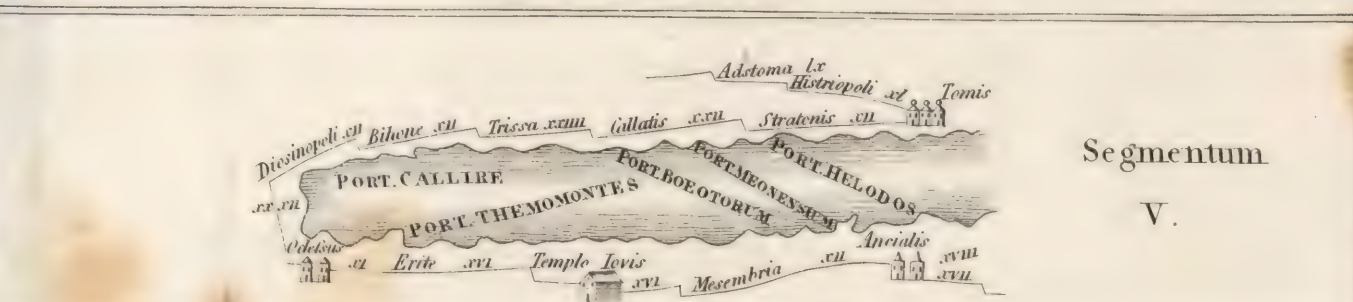 Adstoma lx
Histriopoli xl Tomis
Diosinopoli xii Bihone xii Trissa xxiiii Callatis xxii Stratonis xii
Segmentum
V.
PORT. CALLIRE
PORT. THEMOMONTES
PORT. BOEOTORUM
PORT. MEONENSIUM
PORT. HELODOS
xx xii
Odetsus xi Erite xvi Templo Iovis xvi Mesembria xii Ancialis xviii
xvii